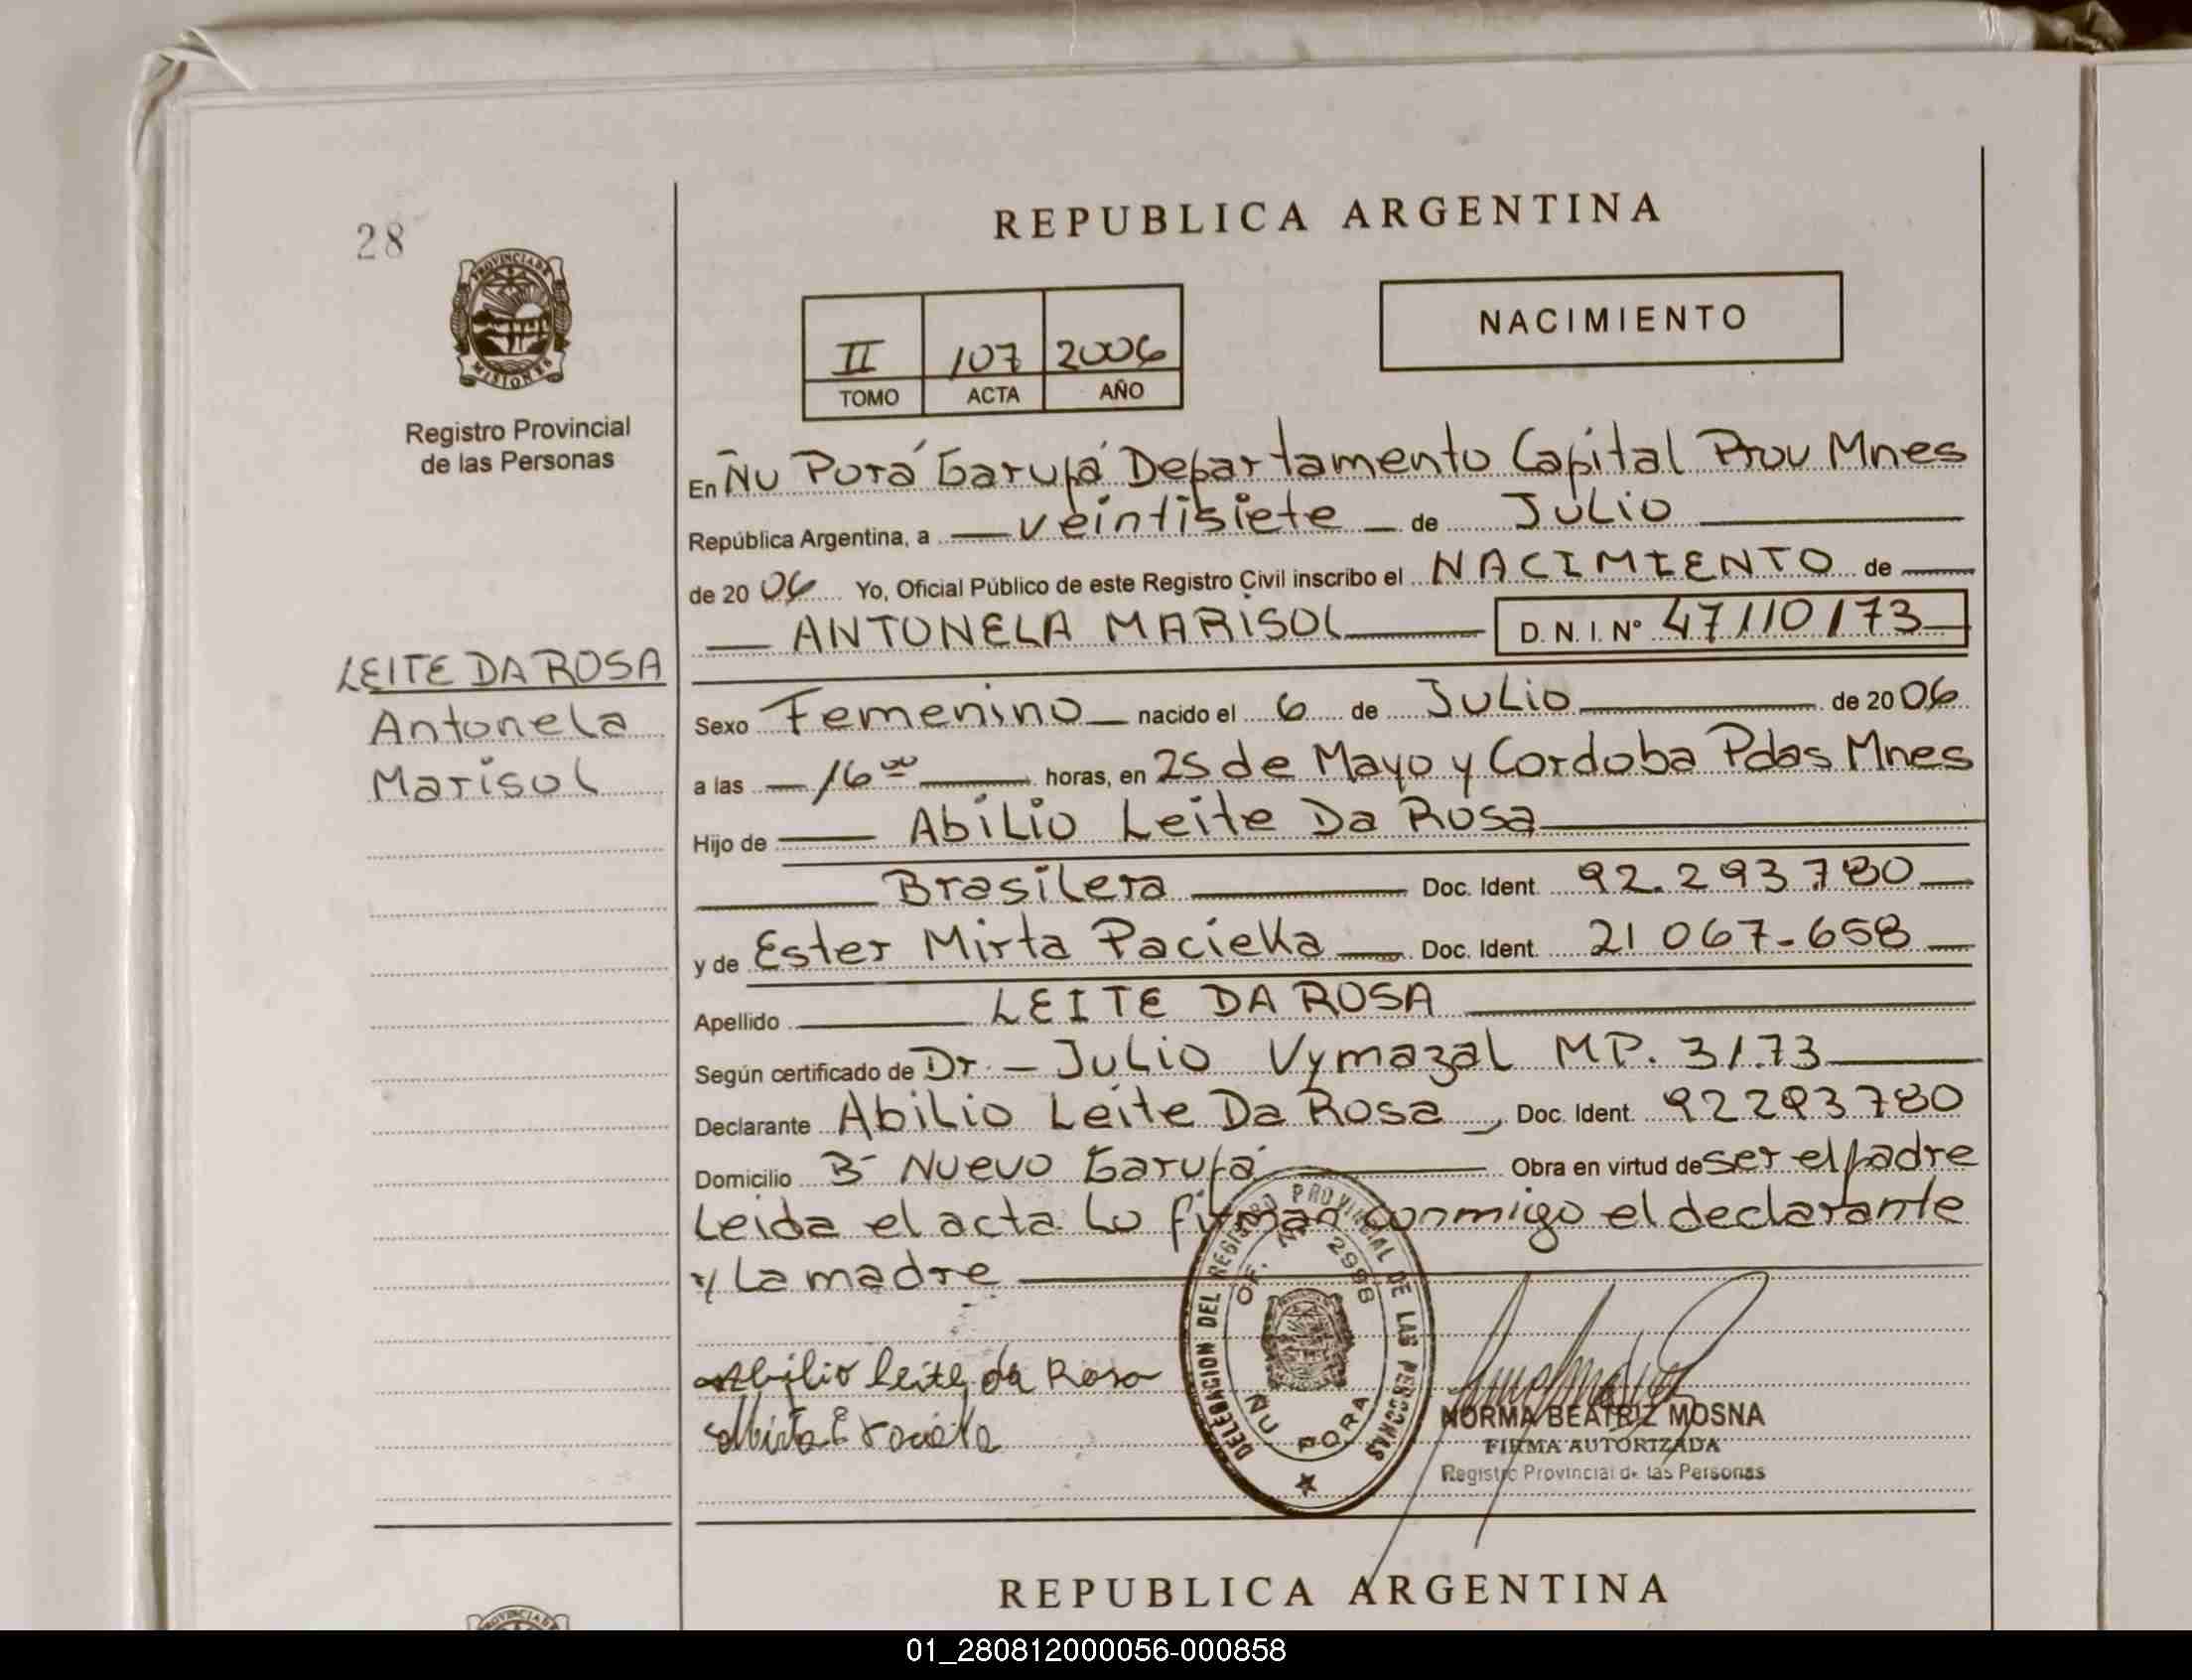 28
PROVINCIA DE
MISIONES
Registro Provincial
de las Personas
REPUBLICA ARGENTINA
II 107 2006
TOMO ACTA AÑO
NACIMIENTO
En Ñu Porá Garupá Departamento Capital Prov Mnes
República Argentina, a veintisiete de Julio
de 2006 Yo, Oficial Público de este Registro Civil inscribo el NACIMIENTO de
ANTONELA MARISOL D. N. I. Nº 47110173
LEITE DA ROSA
Antonela
Marisol
Sexo Femenino nacido el 6 de Julio de 2006
a las 16 00 horas, en 25 de Mayo y Cordoba Pdas Mnes
Hijo de Abilio Leite Da Rosa
Brasilera Doc. Ident. 92.293780
y de Ester Mirta Pacieka Doc. Ident. 21 067-658
Apellido LEITE DA ROSA
Según certificado de Dr. - Julio Vymazal MP. 3173
Declarante Abilio Leite Da Rosa, Doc. Ident. 92293780
Domicilio B- Nuevo Garupá Obra en virtud de ser el padre
Leida el acta Lo firman conmigo el declarante
y La madre
DELEGACION DEL REGISTRO PROVINCIAL DE LAS PERSONAS
OF. 2998
ÑU PORA
Abilio leite da Rosa
Mirta E
NORMA BEATRIZ MOSNA
FIRMA AUTORIZADA
Registro Provincial de las Personas
REPUBLICA ARGENTINA
PROVINCIA DE
01_280812000056-000858